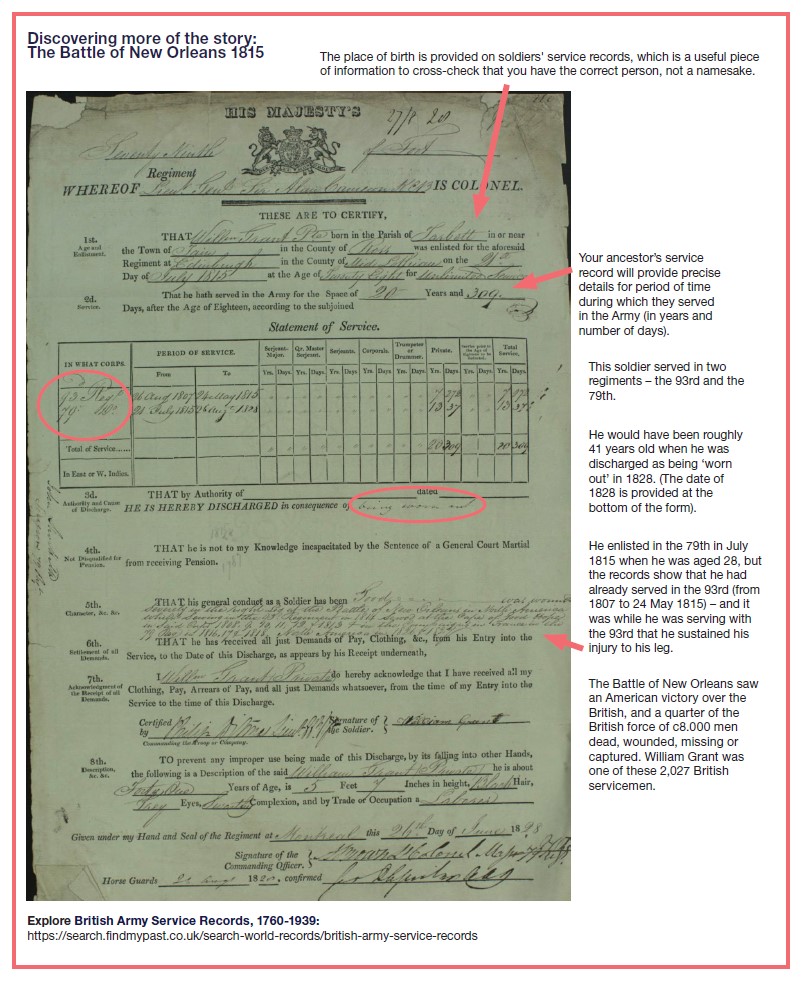 Discovering more of the story:
The Battle of New Orleans 1815
The place of birth is provided on soldiers' service records, which is a useful piece
of information to cross-check that you have the correct person, not a namesake.
HIS MAJESTY'S
27/8 20
Twenty Ninth of Foot
Regiment
WHEREOF Lieut. Genl. Sir Alan Cameron IS COLONEL.
THESE ARE TO CERTIFY,
1st.
Age and
Enlistment.
THAT William Grant born in the Parish of Tarbott in or near
the Town of Tain in the County of Ross was enlisted for the aforesaid
Regiment at Edinburgh in the County of Mid Lothian on the
Day of July 1815 at the Age of Twenty Eight for
2d.
Service.
That he hath served in the Army for the Space of 20 Years and 309
Days, after the Age of Eighteen, according to the subjoined
Statement of Service.
IN WHAT CORPS.
PERIOD OF SERVICE.
Serjeant-Major.
Qr. Master Serjeant.
Serjeants.
Corporals.
Trumpeter or Drummer.
Private.
Total Service.
From To
Yrs. Days. Yrs. Days. Yrs. Days. Yrs. Days. Yrs. Days. Yrs. Days. Yrs. Days. Yrs. Days.
93 Regt. 26 Aug 1807 24 May 1815 7 272 7 272
79 Do. 21 July 1815 26 Aug 1828 13 37 13 37
Total of Service...... 20 309 20 309
In East or W. Indies.
3d.
Authority and Cause
of Discharge.
THAT by Authority of dated
HE IS HEREBY DISCHARGED in consequence of being worn out
4th.
Not Disqualified for
Pension.
THAT he is not to my Knowledge incapacitated by the Sentence of a General Court Martial
from receiving Pension.
5th.
Character, &c. &c.
THAT his general conduct as a Soldier has been Good was wounded
severely in the right leg at the Battle of New Orleans in North America
6th.
Settlement of all
Demands.
THAT he has received all just Demands of Pay, Clothing, &c., from his Entry into the
Service, to the Date of this Discharge, as appears by his Receipt underneath,
7th.
Acknowledgment of
the Receipt of all
Demands.
I William Grant Private do hereby acknowledge that I have received all my
Clothing, Pay, Arrears of Pay, and all just Demands whatsoever, from the time of my Entry into the
Service to the time of this Discharge.
Certified by Signature of the Soldier. William Grant
Commanding the Troop or Company.
8th.
Description,
&c. &c.
TO prevent any improper use being made of this Discharge, by its falling into other Hands,
the following is a Description of the said William Grant Private he is about
Forty One Years of Age, is 5 Feet 7 Inches in height, Black Hair,
Grey Eyes, Swarthy Complexion, and by Trade or Occupation a Laborer
Given under my Hand and Seal of the Regiment at Montreal this 24th Day of June 1828
Signature of the
Commanding Officer.
Horse Guards 1828, confirmed
Your ancestor's service
record will provide precise
details for period of time
during which they served
in the Army (in years and
number of days).
This soldier served in two
regiments – the 93rd and the
79th.
He would have been roughly
41 years old when he was
discharged as being 'worn
out' in 1828. (The date of
1828 is provided at the
bottom of the form).
He enlisted in the 79th in July
1815 when he was aged 28, but
the records show that he had
already served in the 93rd (from
1807 to 24 May 1815) – and it
was while he was serving with
the 93rd that he sustained his
injury to his leg.
The Battle of New Orleans saw
an American victory over the
British, and a quarter of the
British force of c8.000 men
dead, wounded, missing or
captured. William Grant was
one of these 2,027 British
servicemen.
Explore British Army Service Records, 1760-1939:
https://search.findmypast.co.uk/search-world-records/british-army-service-records